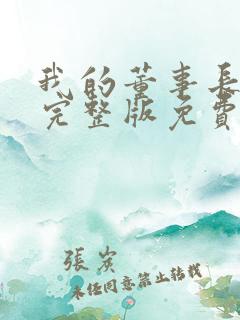 我的董事长
完整版免费
張炭
未经同意禁止转载